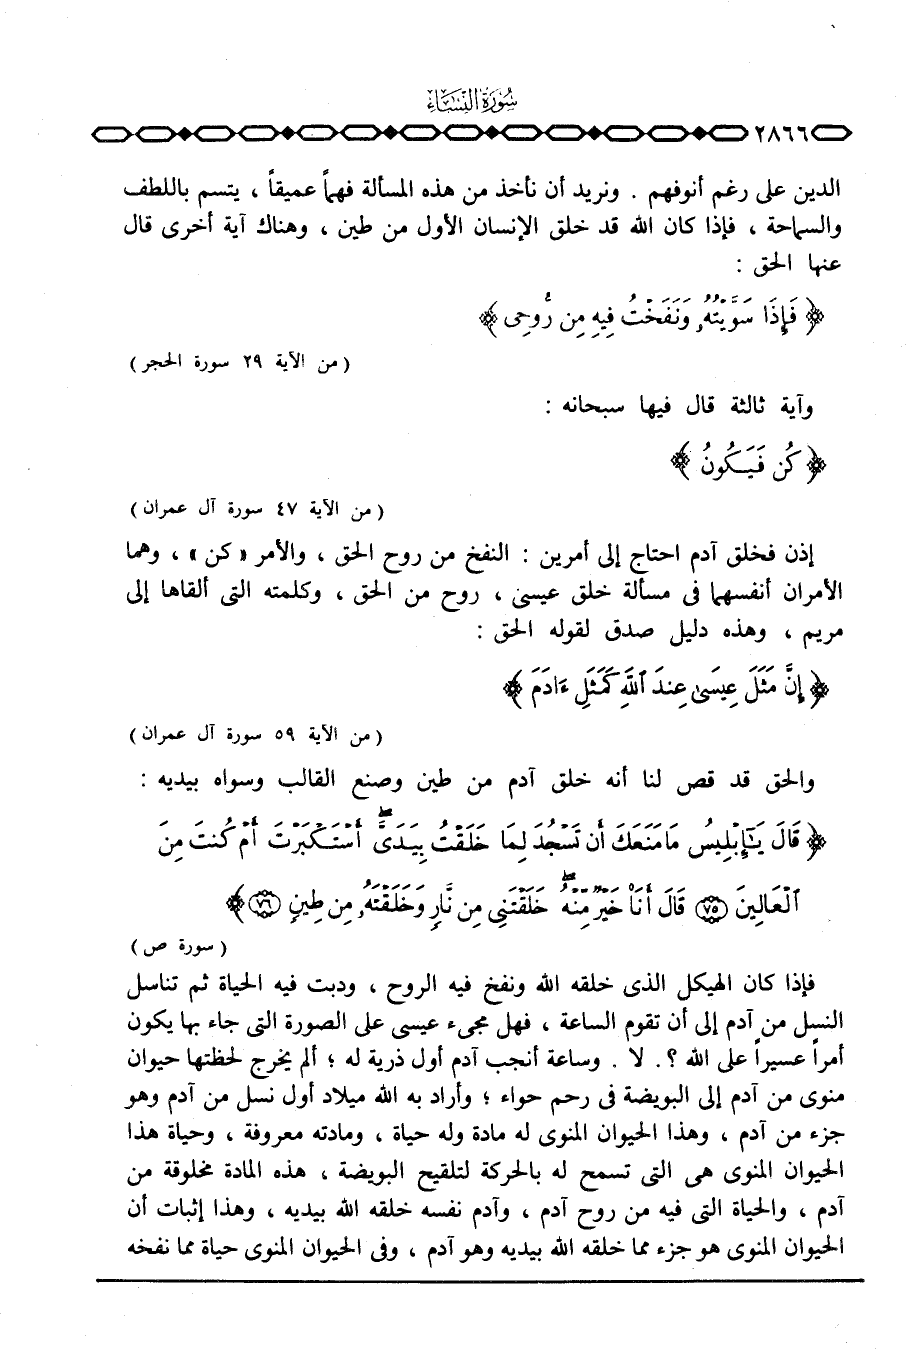 سُورَةُ النِّسَاءِ
٢٨٦٦
الدين على رغم أنوفهم . ونريد أن نأخذ من هذه المسألة فهماً عميقاً ، يتسم باللطف
والسماحة ، فإذا كان الله قد خلق الإنسان الأول من طين ، وهناك آية أخرى قال
عنها الحق :
﴿ فَإِذَا سَوَّيْتُهُۥ وَنَفَخْتُ فِيهِ مِن رُّوحِى ﴾
( من الآية ٢٩ سورة الحجر )
وآية ثالثة قال فيها سبحانه :
﴿ كُن فَيَكُونُ ﴾
( من الآية ٤٧ سورة آل عمران )
إذن فخلق آدم احتاج إلى أمرين : النفخ من روح الحق ، والأمر « كن » ، وهما
الأمران أنفسهما فى مسألة خلق عيسى ، روح من الحق ، وكلمته التى ألقاها إلى
مريم ، وهذه دليل صدق لقوله الحق :
﴿ إِنَّ مَثَلَ عِيسَىٰ عِندَ ٱللَّهِ كَمَثَلِ ءَادَمَ ﴾
( من الآية ٥٩ سورة آل عمران )
والحق قد قص لنا أنه خلق آدم من طين وصنع القالب وسواه بيديه :
﴿ قَالَ يَـٰٓإِبْلِيسُ مَا مَنَعَكَ أَن تَسْجُدَ لِمَا خَلَقْتُ بِيَدَىَّ ۖ أَسْتَكْبَرْتَ أَمْ كُنتَ مِنَ
ٱلْعَالِينَ ﴿٧٥﴾ قَالَ أَنَا۠ خَيْرٌ مِّنْهُ ۖ خَلَقْتَنِى مِن نَّارٍ وَخَلَقْتَهُۥ مِن طِينٍ ﴿٧٦﴾ ﴾
( سورة ص )
فإذا كان الهيكل الذى خلقه الله ونفخ فيه الروح ، ودبت فيه الحياة ثم تناسل
النسل من آدم إلى أن تقوم الساعة ، فهل مجىء عيسى على الصورة التى جاء بها يكون
أمراً عسيراً على الله ؟. لا . وساعة أنجب آدم أول ذرية له ؛ ألم يخرج لحظتها حيوان
منوى من آدم إلى البويضة فى رحم حواء ؛ وأراد به الله ميلاد أول نسل من آدم وهو
جزء من آدم ، وهذا الحيوان المنوى له مادة وله حياة ، ومادته معروفة ، وحياة هذا
الحيوان المنوى هى التى تسمح له بالحركة لتلقيح البويضة ، هذه المادة مخلوقة من
آدم ، والحياة التى فيه من روح آدم ، وآدم نفسه خلقه الله بيديه ، وهذا إثبات أن
الحيوان المنوى هو جزء مما خلقه الله بيديه وهو آدم ، وفى الحيوان المنوى حياة مما نفخه